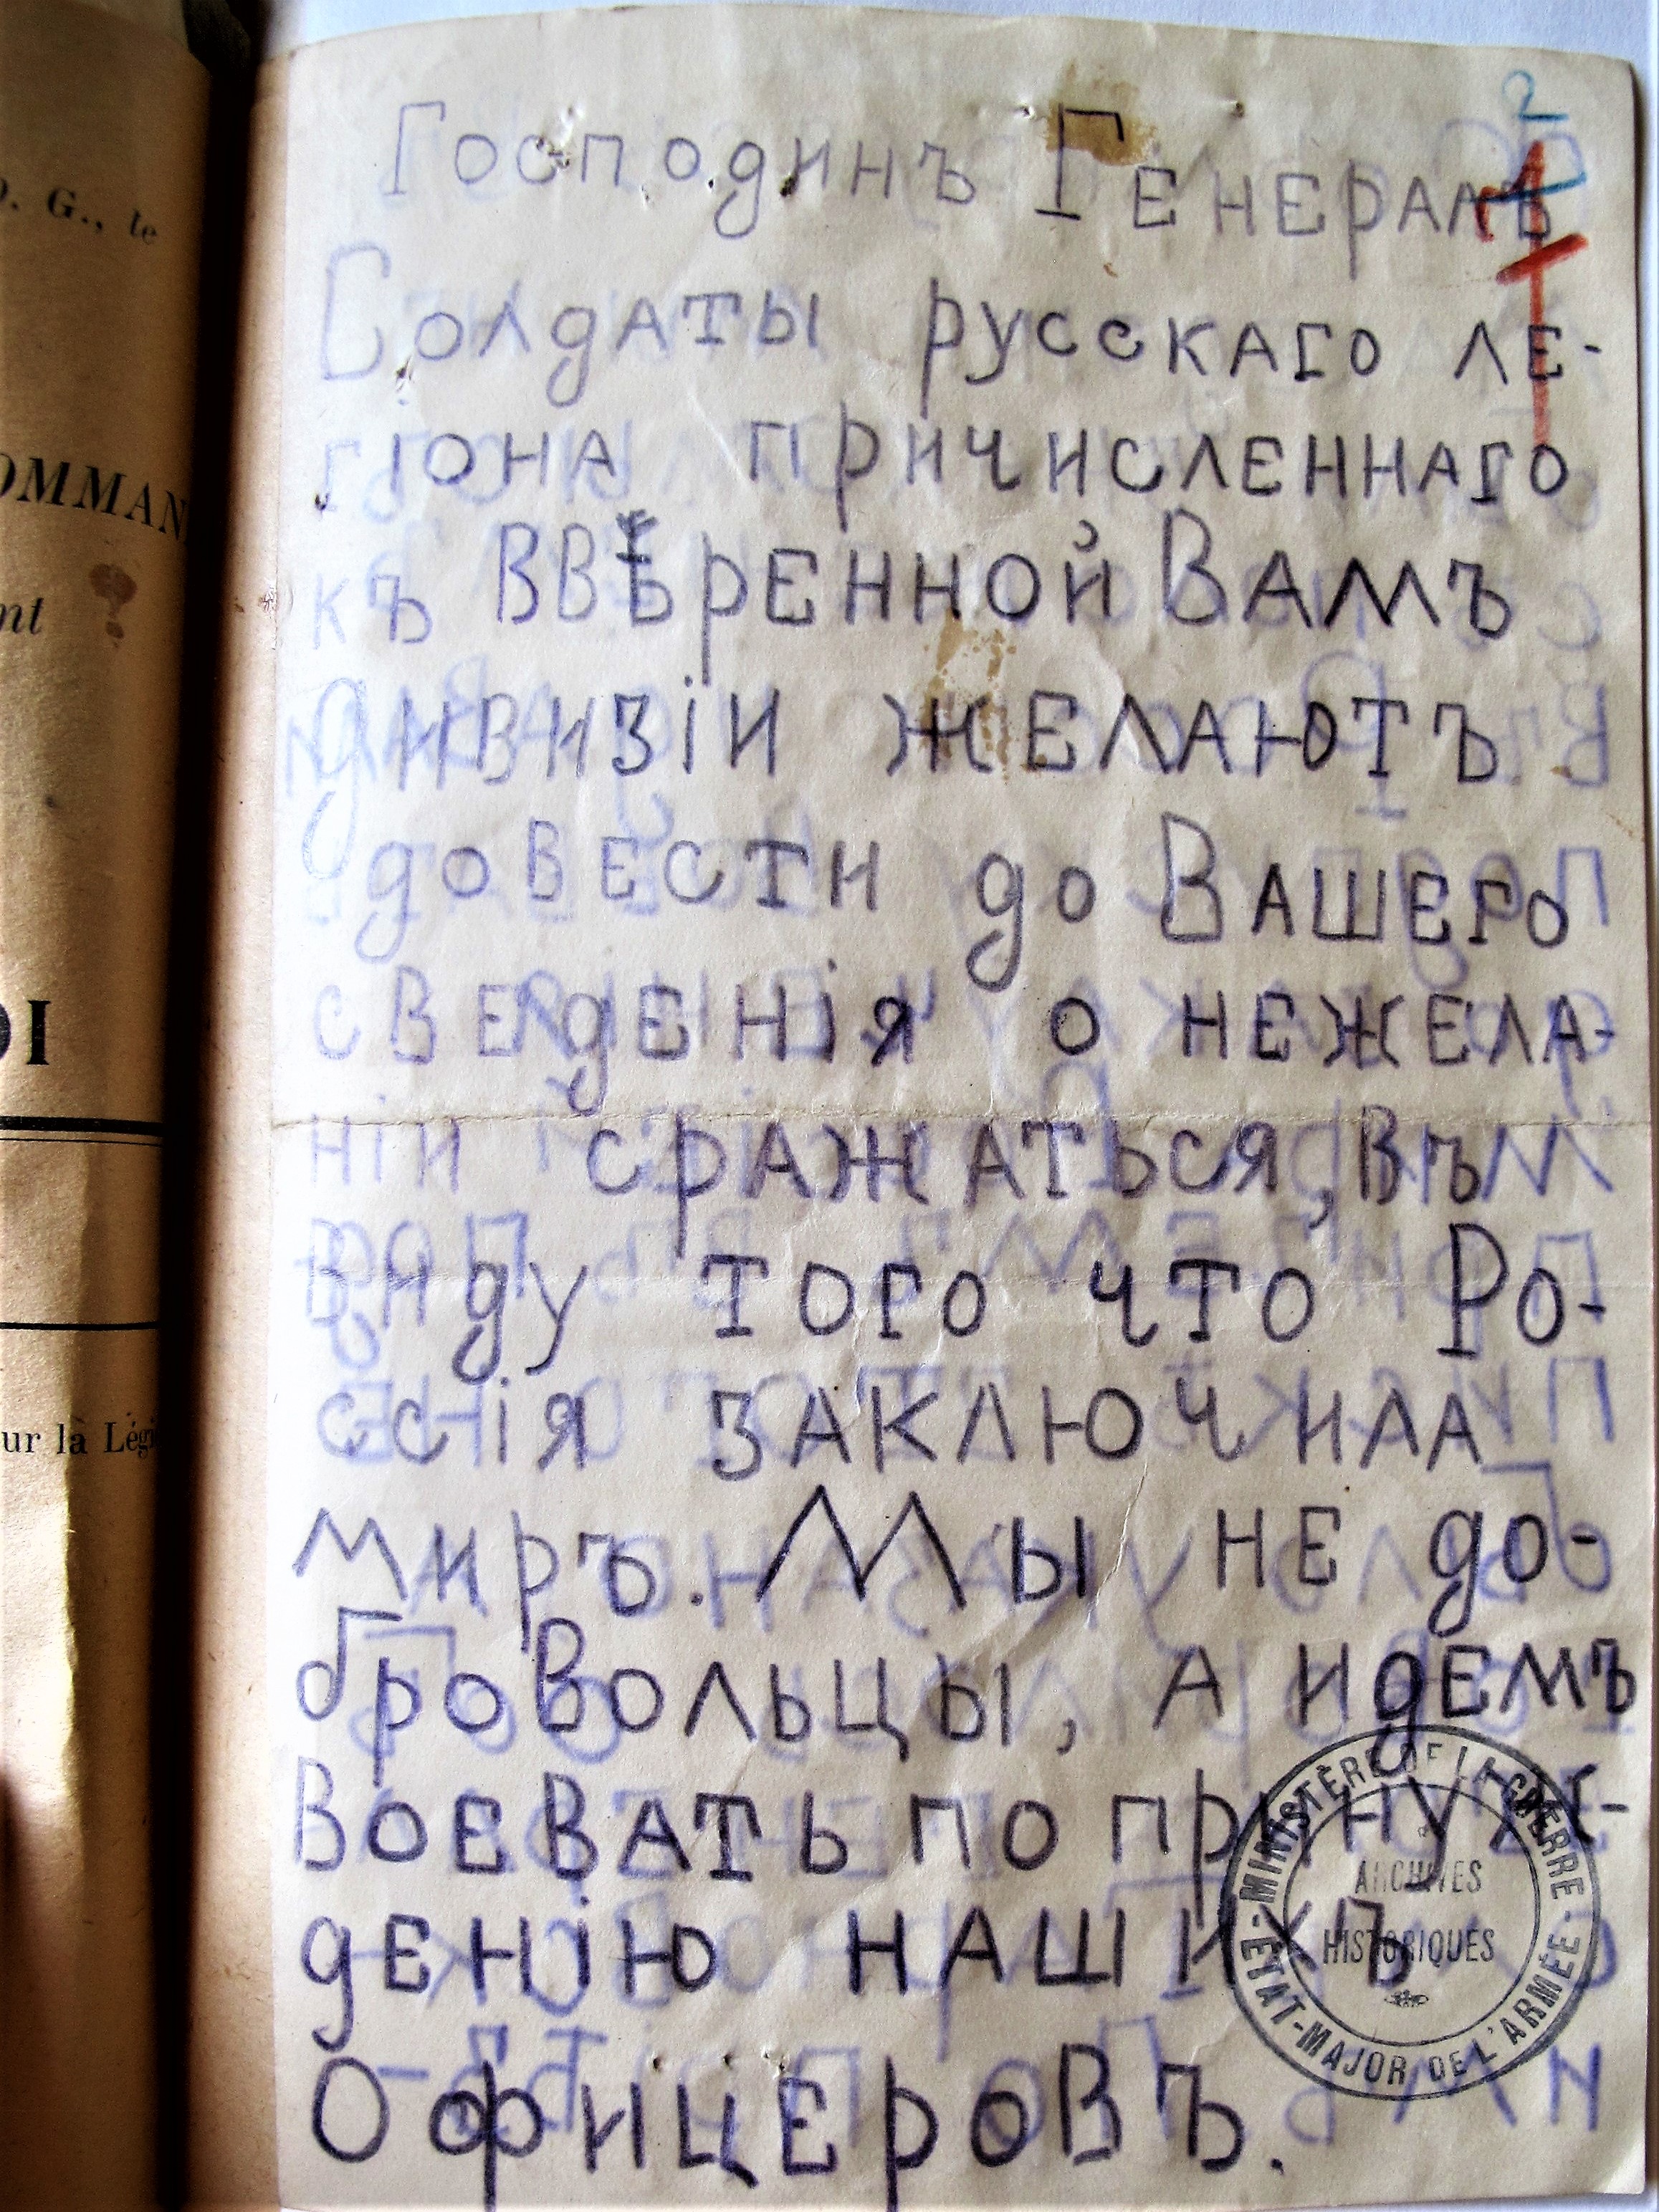 2
Господинъ Генералъ
Солдаты русскаго ле-
гіона причисленнаго
къ ввѣренной Вамъ
дивизіи желаютъ
довести до Вашего
сведенія о нежела-
ніи сражаться, въ
виду того что Ро-
ссія заключила
миръ. Мы не до-
бровольцы, а идемъ
воевать по принуж-
денію нашихъ
Офицеровъ.
MINISTÈRE DE LA GUERRE
ÉTAT-MAJOR DE L'ARMÉE
ARCHIVES
HISTORIQUES
O. G., le
OMMAN
nt
OI
ur la Légi